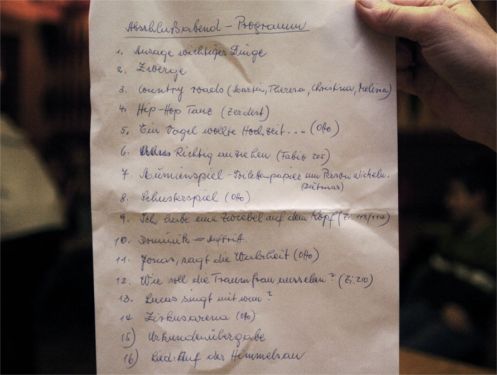 Abschlußabend - Programm
1. Ansage wichtiger Dinge
2. Zwerge
3. Country roads (Martin, Theresa, Christina, Melina)
4. Hip-Hop Tanz (Zerdert)
5. Ein Vogel wollte Hochzeit... (Otto)
6. Richtig anziehen (Fabio 205)
7. Mumienspiel - Toilettenpapier um Person wickeln.
(Dietmar)
8. Schusterspiel (Otto)
9. Ich habe eine Zwiebel auf dem Kopf (Zi. 113/112)
10. Dominik = Auftritt
11. Jonas, sagt die Wahrheit (Otto)
12. Wie soll die Traumfrau aussehen? (Zi. 210)
13. Lucas singt mit wem?
14. Zirkusarena (Otto)
15) Urkundenübergabe
16) Lied: Auf der Himmelsau